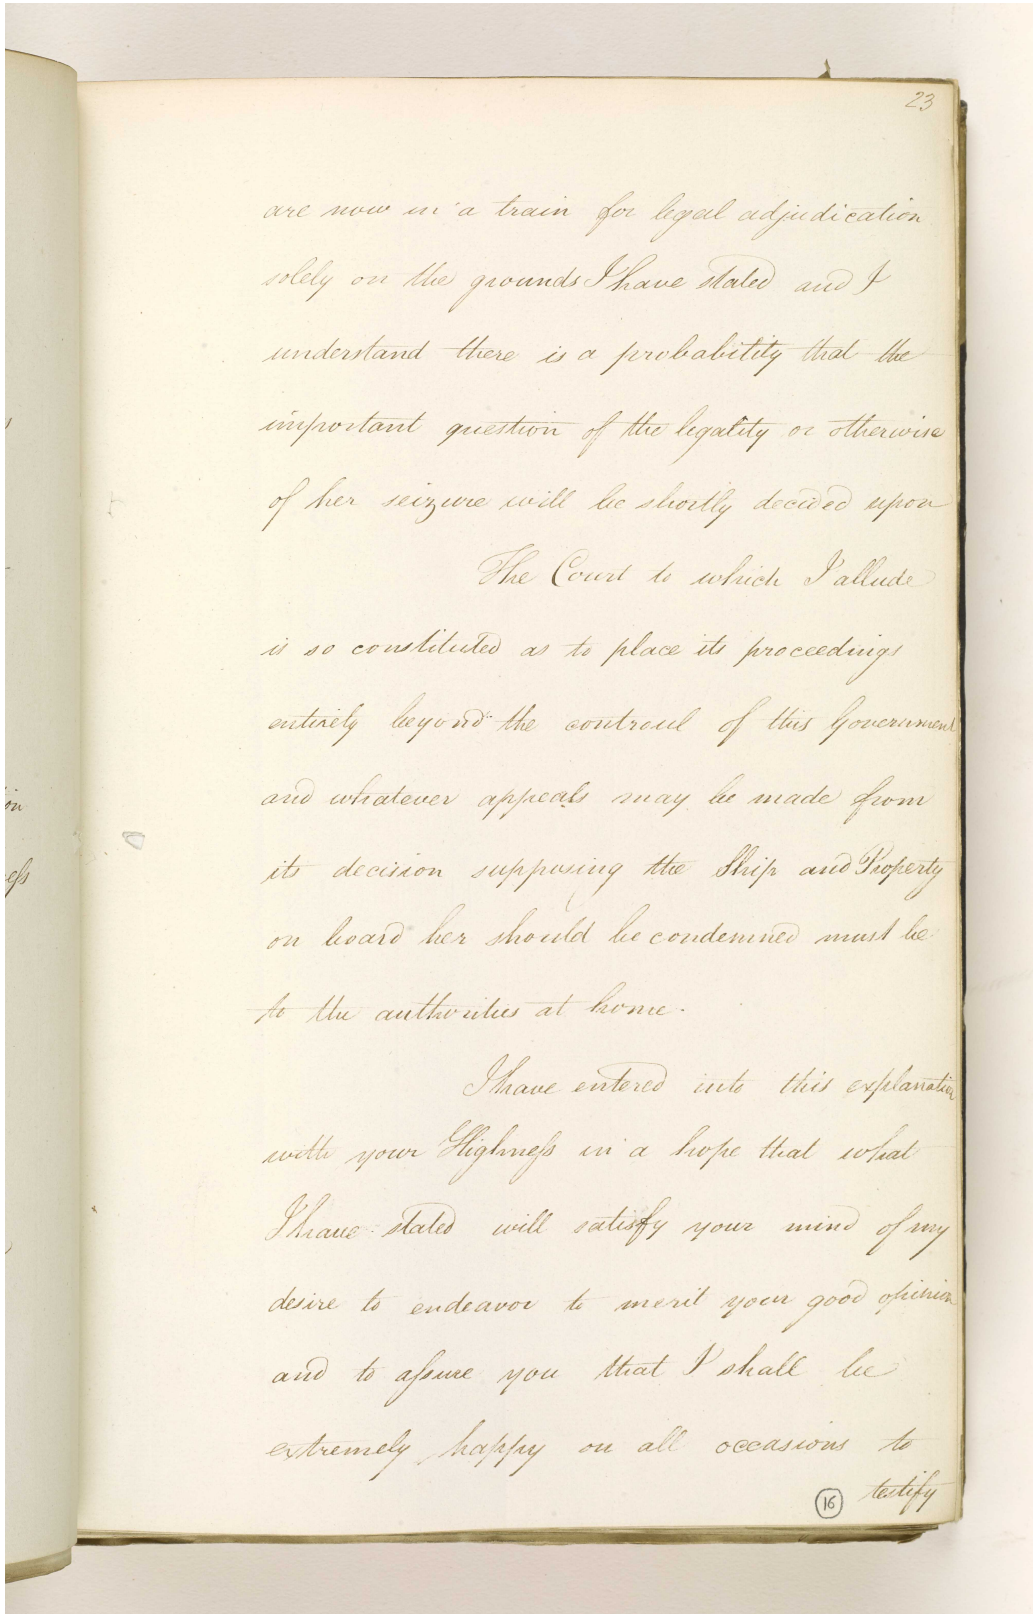 23
are now in a train for legal adjudication
solely on the grounds I have stated and I
understand there is a probability that the
important question of the legality or otherwise
of her seizure will be shortly decided upon
The Court to which I allude
is so constituted as to place its proceedings
entirely beyond the controul of this Government
and whatever appeals may be made from
its decision supposing the Ship and Property
on board her should be condemned must be
to the authorities at home.
I have entered into this explanation
with your Highneſs in a hope that what
I have stated will satisfy your mind of my
desire to endeavor to merit your good opinion
and to aſsure you that I shall be
extremely happy on all occasions to
testify
16